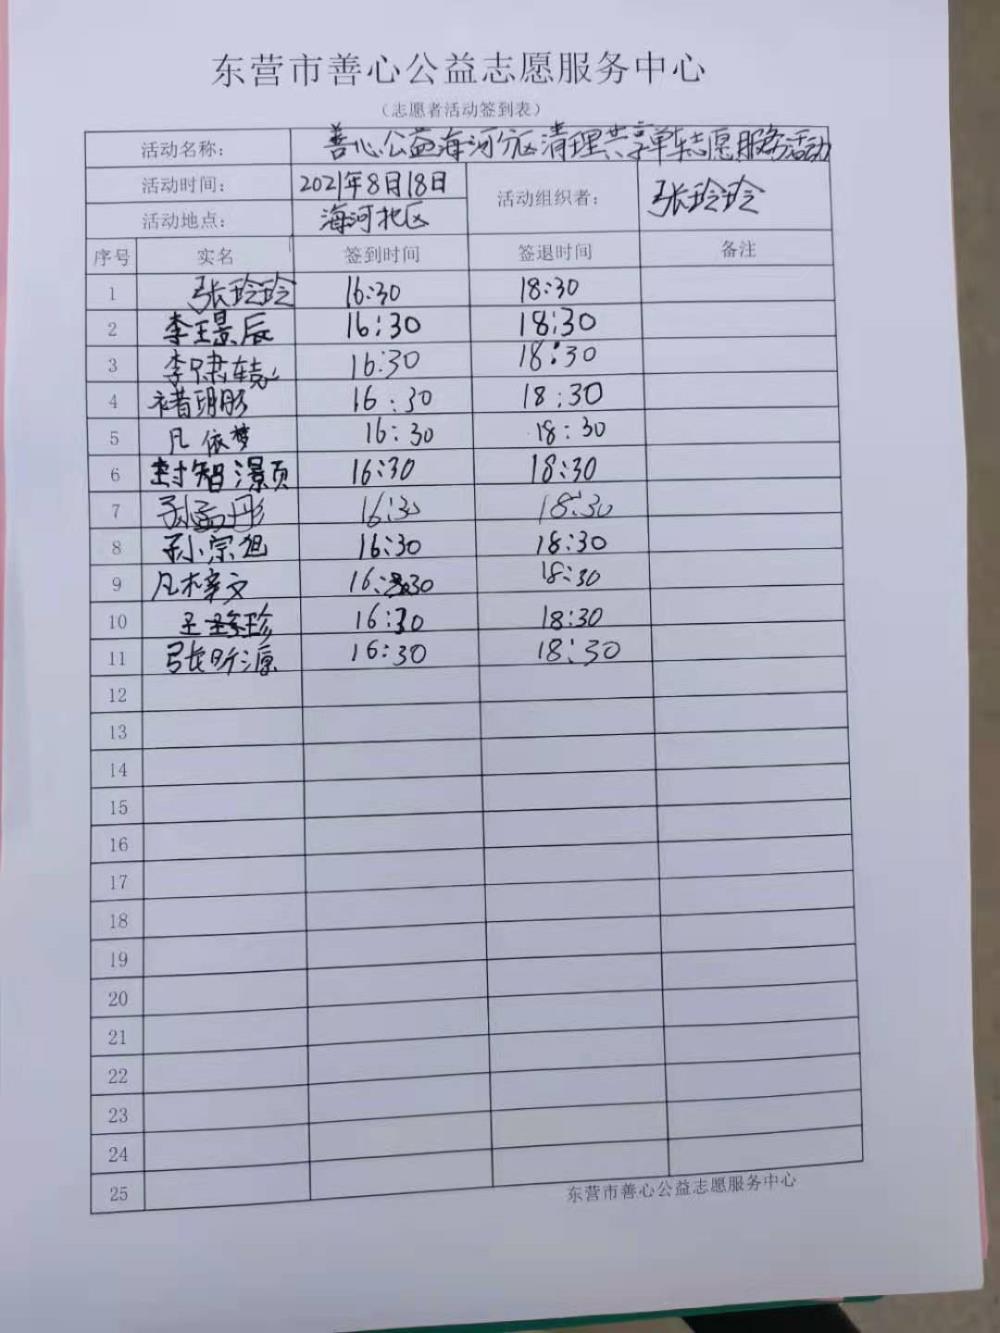 东营市善心公益志愿服务中心
（志愿者活动签到表）
活动名称： 善心公益海河分区清理共享单车志愿服务活动
活动时间： 2021年8月18日 活动组织者： 张玲玲
活动地点： 海河北区
序号 实名 签到时间 签退时间 备注
1 张玲玲 16:30 18:30
2 李王景辰 16:30 18:30
3 16:30 18:30
4 褚玥彤 16:30 18:30
5 凡依梦 16:30 18:30
6 封智灏 16:30 18:30
7 孙孟彤 16:30 18:30
8 孙宗旭 16:30 18:30
9 凡梓文 16:30 18:30
10 16:30 18:30
11 张昕源 16:30 18:30
12
13
14
15
16
17
18
19
20
21
22
23
24
25
东营市善心公益志愿服务中心